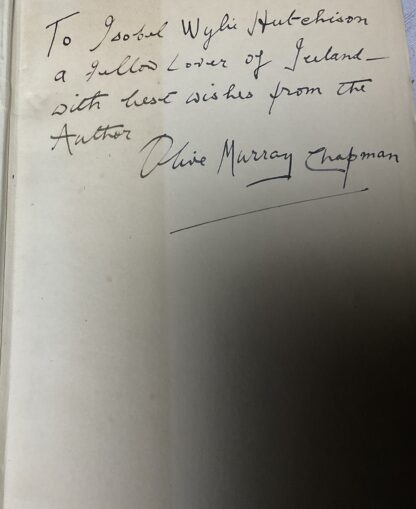 To Isobel Wylie Hutchison
a fellow Lover of Iceland —
with best wishes from the
Author
Olive Murray Chapman